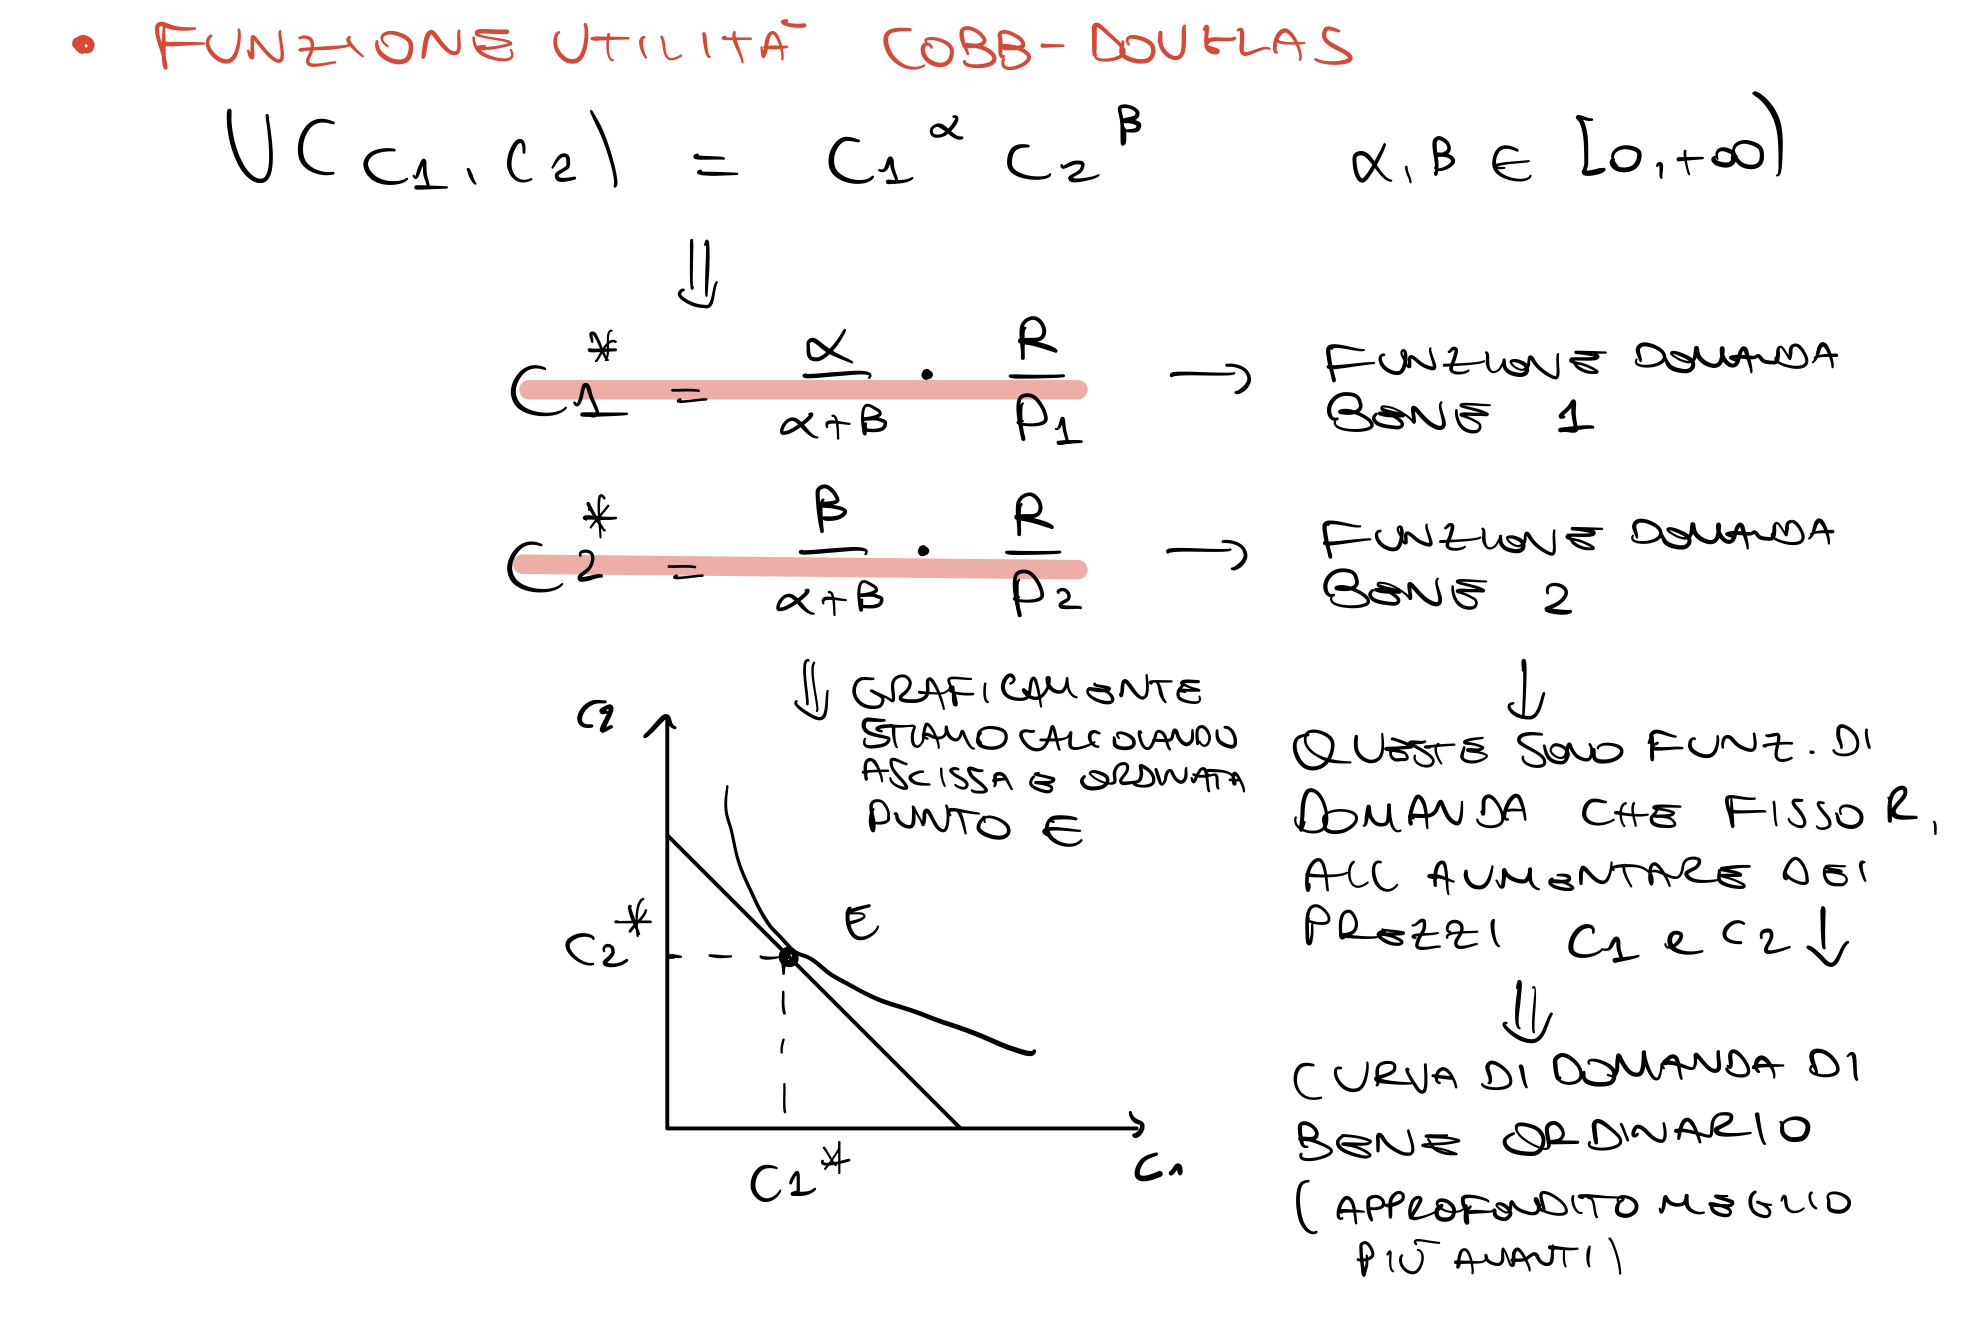 • FUNZIONE UTILITÀ COBB-DOUGLAS
U(C1, C2) = C1^α C2^β α, β ∈ [0, +∞)
⇓
C1* = α/(α+β) · R/P1 → FUNZIONE DOMANDA
BENE 1
C2* = β/(α+β) · R/P2 → FUNZIONE DOMANDA
BENE 2
⇓ GRAFICAMENTE
STIAMO CALCOLANDO
ASCISSA E ORDINATA
PUNTO E
C2
E
C2*
C1*
C1
↓
QUESTE SONO FUNZ. DI
DOMANDA CHE FISSO R,
ALL AUMENTARE DEI
PREZZI C1 e C2 ↓
⇓
CURVA DI DOMANDA DI
BENE ORDINARIO
(APPROFONDITO MEGLIO
PIÙ AVANTI)